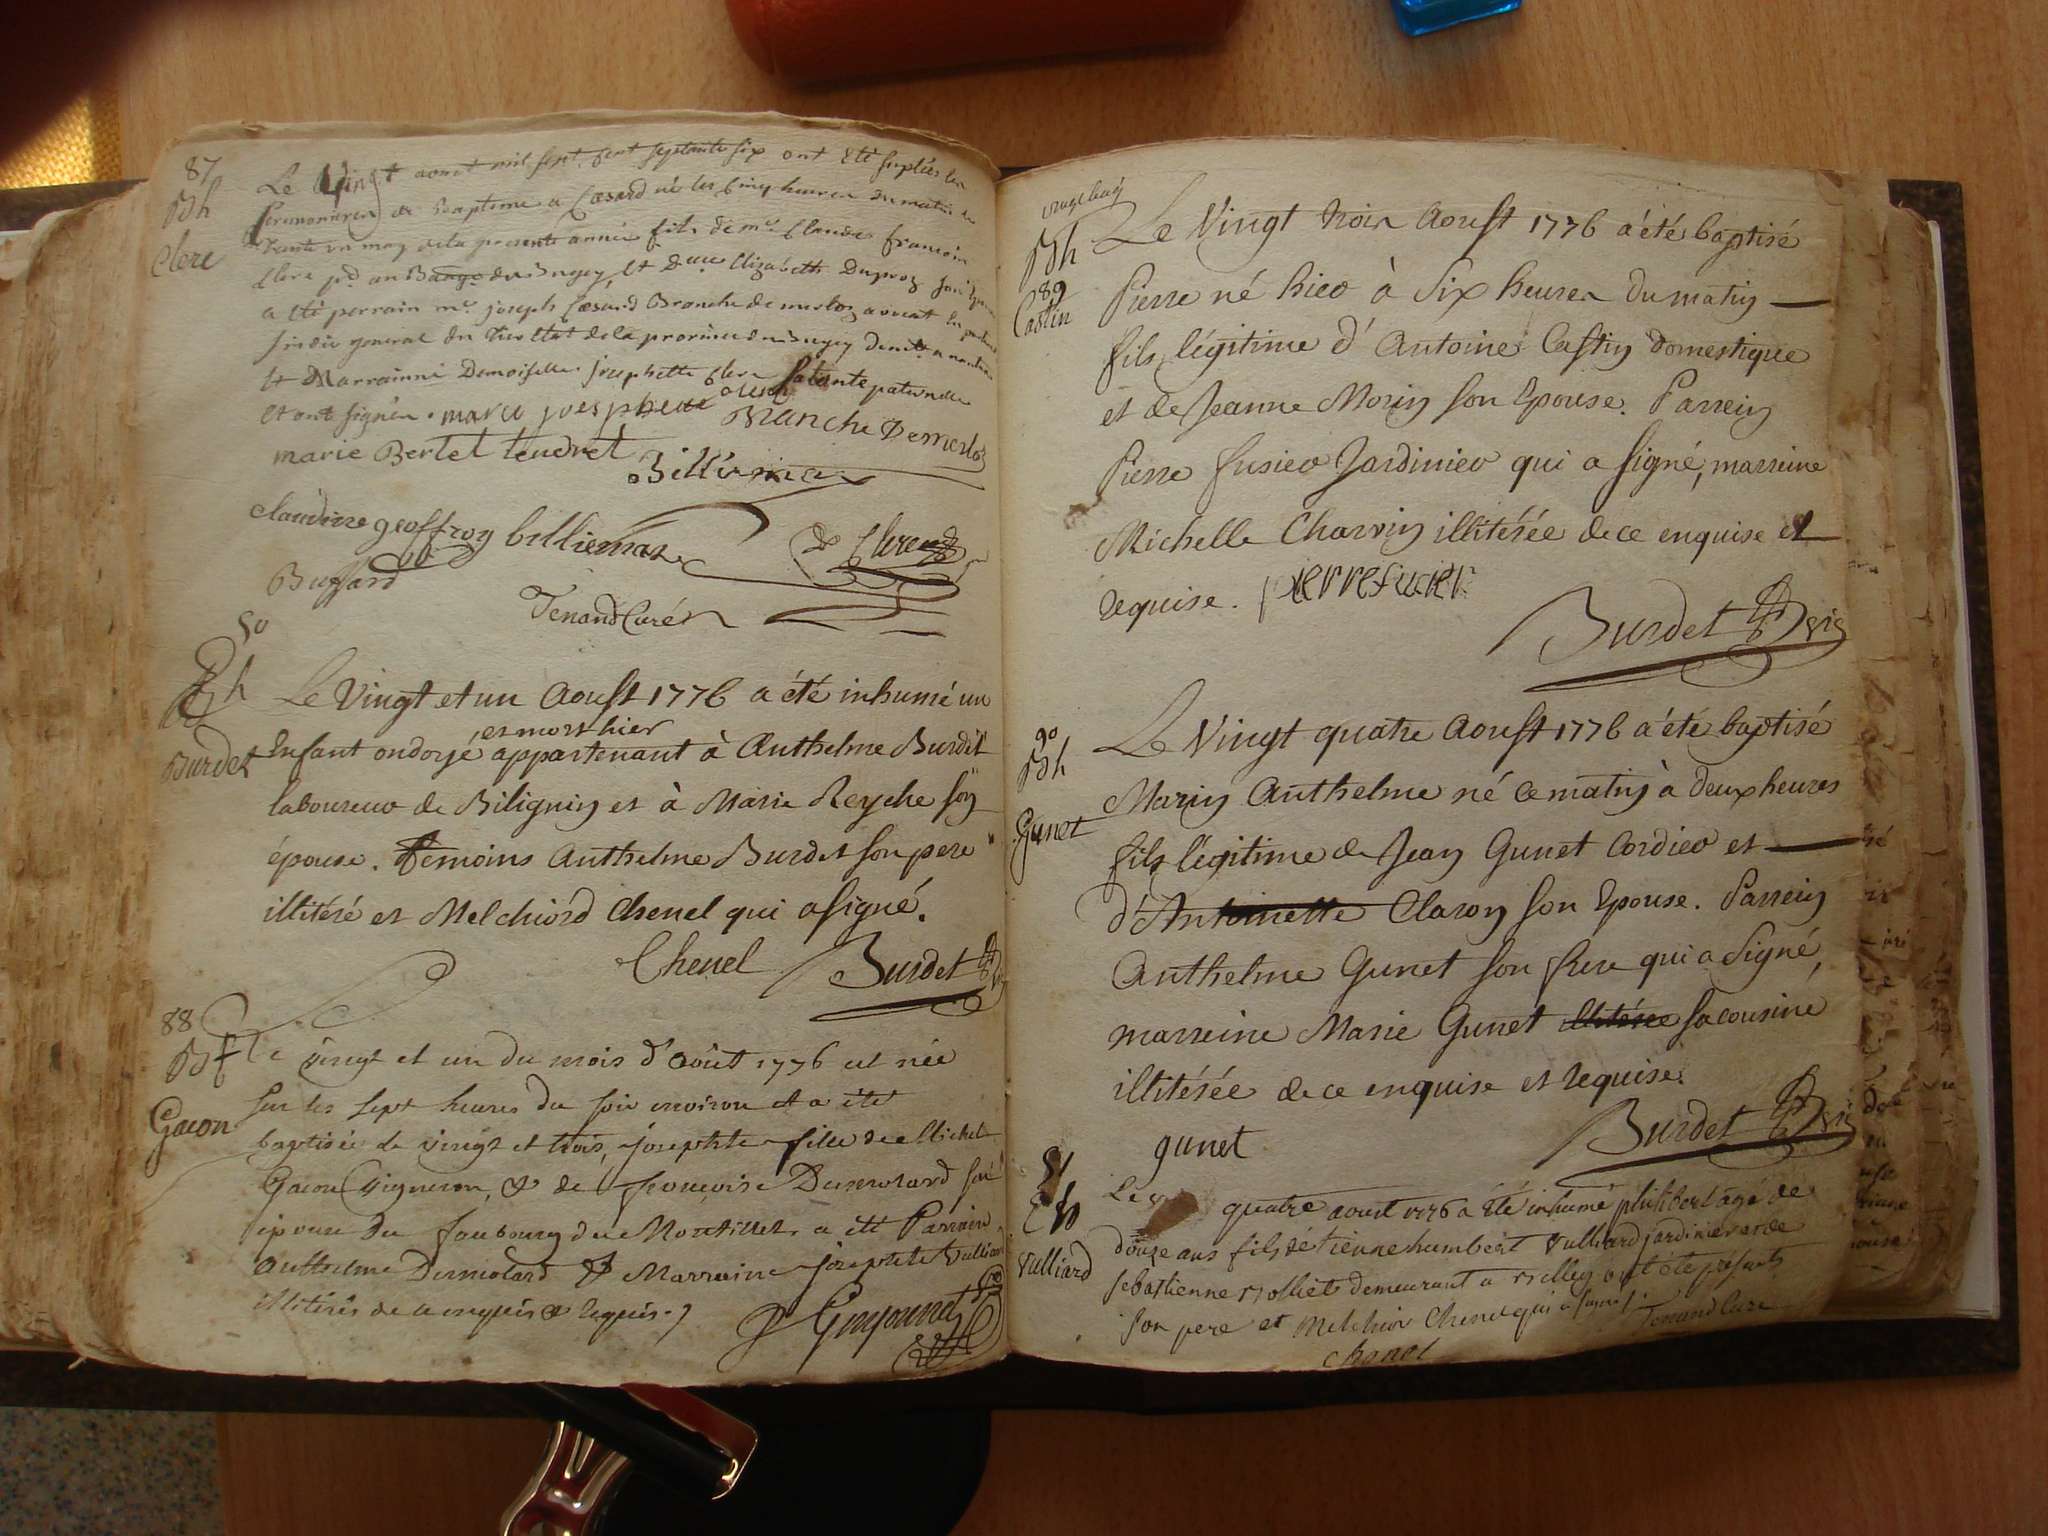 87
Bh
Clerc
Le Vingt aoust mil sept cent septante six ont été suplées les
ceremonies de Baptème a Cæsard né les cinq heures du matin le
trente un may de la presente année fils de mr Claude francois
Clerc pr au du Bugey, Et Dme Elizabeth Duproz son
a été perrain mr joseph Cæsard Branche de merloz avocat en
sindic general du tiers Etat de la province du Bugey
Et Marrainne Demoiselle josephette Clerc sa tante paternelle
et ont signés. marie josephette Clerc Branche Demerloz
marie Bertet tendret Billiemaz
Claudine geoffroy billiemaz Clerc
Buffard
Tenand Curé
50
Eh
Burdet
Le Vingt et un Aoust 1776 a été inhumé un
et mort hier
Enfant ondoyé appartenant à Anthelme Burdet
laboureur de Bilignin et à Marie Reyche son
épouse. Temoins Anthelme Burdet son pere
illitéré et Melchiord Chenel qui a signé.
Chenel Burdet Vic
88
Bf
Gacon
Le vingt et un du mois d'Août 1776 est née
sur les sept heures du soir environ et a été
baptisée le vingt et trois, josephte fille de Michel
Gacon Vigneron, & de françoise Dumolard son
épouse du faubourg du Montillet. a été Parrain
Anthelme Dumolard & Marraine josephte Vulliard
illitérés de ce enquis & requis.
Guyonnet
Bh
89
Castin
Le Vingt trois Aoust 1776 a été baptisé
Pierre né hier à Six heures du matin
fils légitime d'Antoine Castin domestique
et de Jeanne Morin son Epouse. Parrein
Pierre fusier Jardinier qui a signé, marreine
Michelle Charvin illitérée de ce enquise et
requise. pierre fucier
Burdet Vic
90
Bh
Gunet
Le Vingt quatre Aoust 1776 a été baptisé
Marin Anthelme né ce matin à deux heures
fils légitime de Jean Gunet Cordier et
d'Antoinette Claron son Epouse. Parrein
Anthelme Gunet son frere qui a signé,
marreine Marie Gunet illitérée sa cousine
illitérée de ce enquise et requise.
gunet Burdet Vic
51
Eh
Vulliard
Le quatre aoust 1776 a été inhumé philibert âgé de
douze ans fils détienne humbert Vulliard jardinier et de
sebastienne rolliet demeurant a Belley ont été présents
son pere et Melchior Chenel qui a signé. Tenand Curé
Chenel